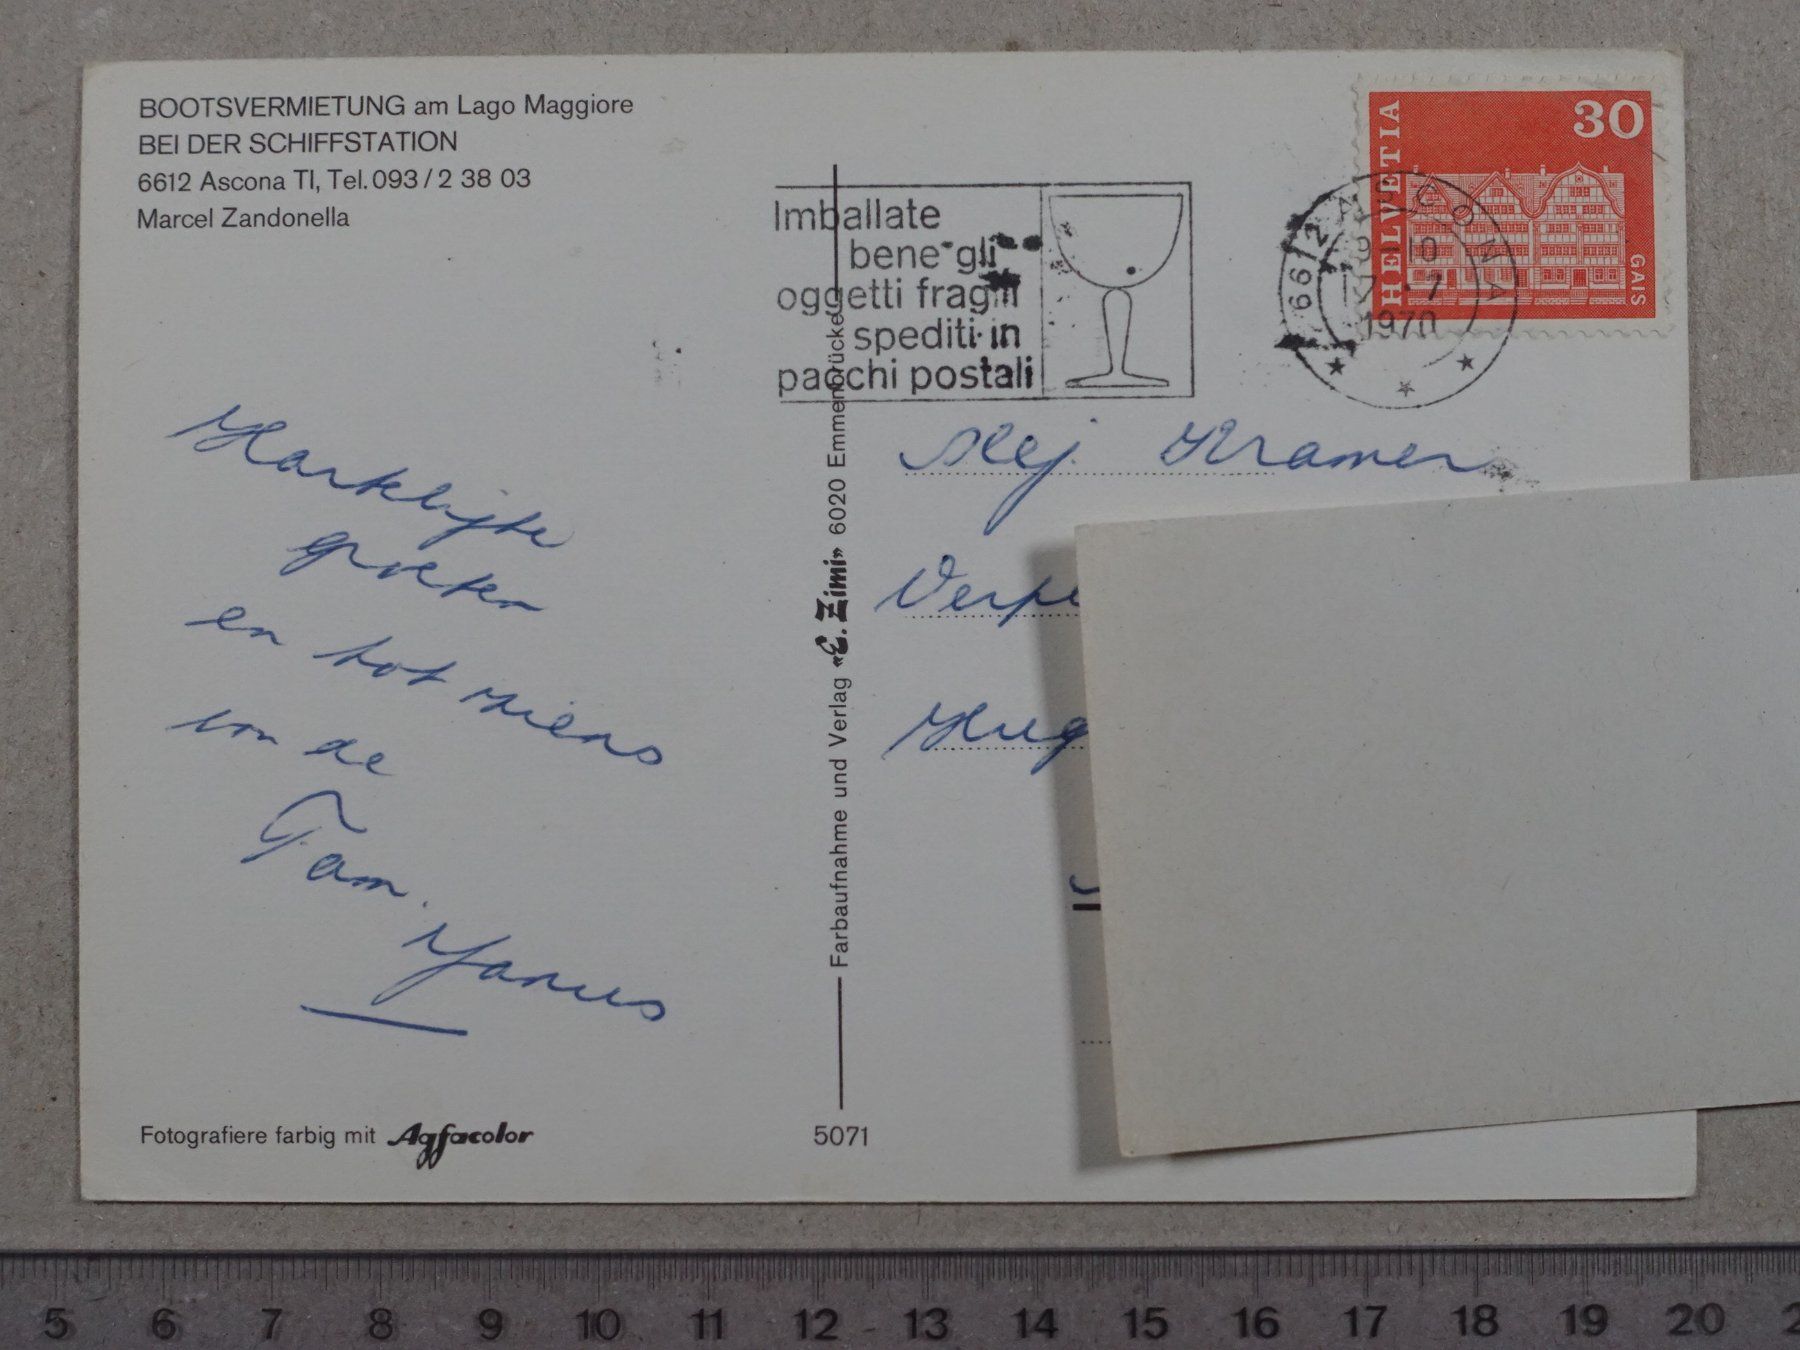 BOOTSVERMIETUNG am Lago Maggiore
BEI DER SCHIFFSTATION
6612 Ascona TI, Tel. 093 / 2 38 03
Marcel Zandonella
Imballate
bene gli
oggetti fragili
spediti in
pacchi postali
6612 ASCONA
-7
1970
HELVETIA
30
GAIS
Hartelijke
groeten
en tot ziens
van de
Fam.
Mej. Kramer
Farbaufnahme und Verlag «E. Zimi» 6020 Emmenbrücke
Fotografiere farbig mit Agfacolor
5071
5 6 7 8 9 10 11 12 13 14 15 16 17 18 19 20